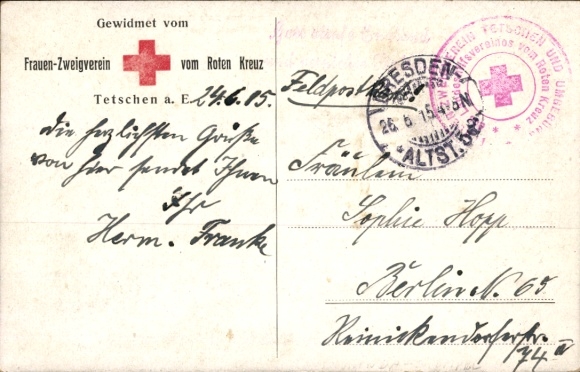 Gewidmet vom
Frauen-Zweigverein vom Roten Kreuz
Tetschen a. E.
24.6.15.
die herzlichsten Grüße
von hier sendet Ihnen
Ihr
Herm. Franke
Feldpostkarte
DRESDEN-
26.6.15.4-5N
*ALTST.
VEREIN TETSCHEN UND UMGEBUNG
vom Roten Kreuz
Fräulein
Sophie Hopp
Berlin N. 65
Reinickendorferstr.
74 a